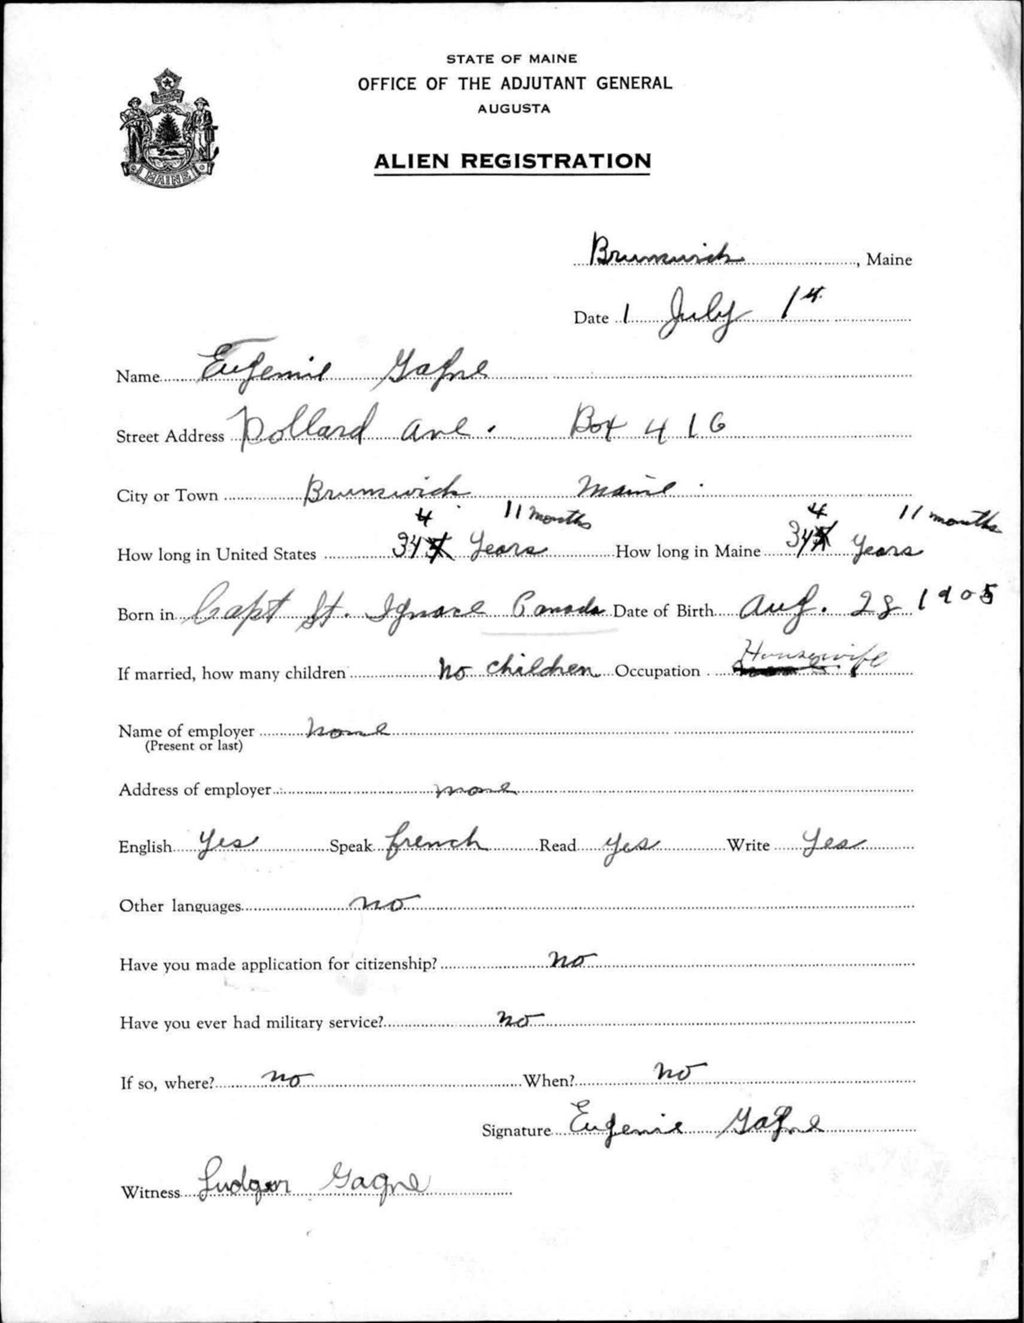 STATE OF MAINE
OFFICE OF THE ADJUTANT GENERAL
AUGUSTA
ALIEN REGISTRATION
MAINE
Brunswick, Maine
Date 1 July 1st
Name Eugenie Gagne
Street Address Pollard Ave. Box 416
City or Town Brunswick Maine.
4 11 months 4 11 months
How long in United States 34 Years How long in Maine 34 Years
Born in Capt St. Ignace Canada Date of Birth Aug. 28 1905
If married, how many children no children Occupation Housewife
Name of employer none
(Present or last)
Address of employer none
English Yes Speak french Read yes Write Yes
Other languages no
Have you made application for citizenship? no
Have you ever had military service? no
If so, where? no When? no
Signature Eugenie Gagne
Witness Ludger Gagne